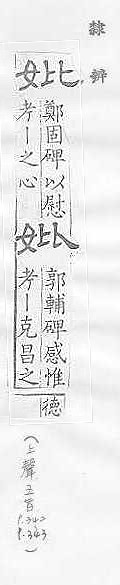 隸辨
妣
鄭固碑以慰
考丨之心
妣
郭輔碑感惟
考丨克昌之
德
(上聲五旨
P.342
P.343)